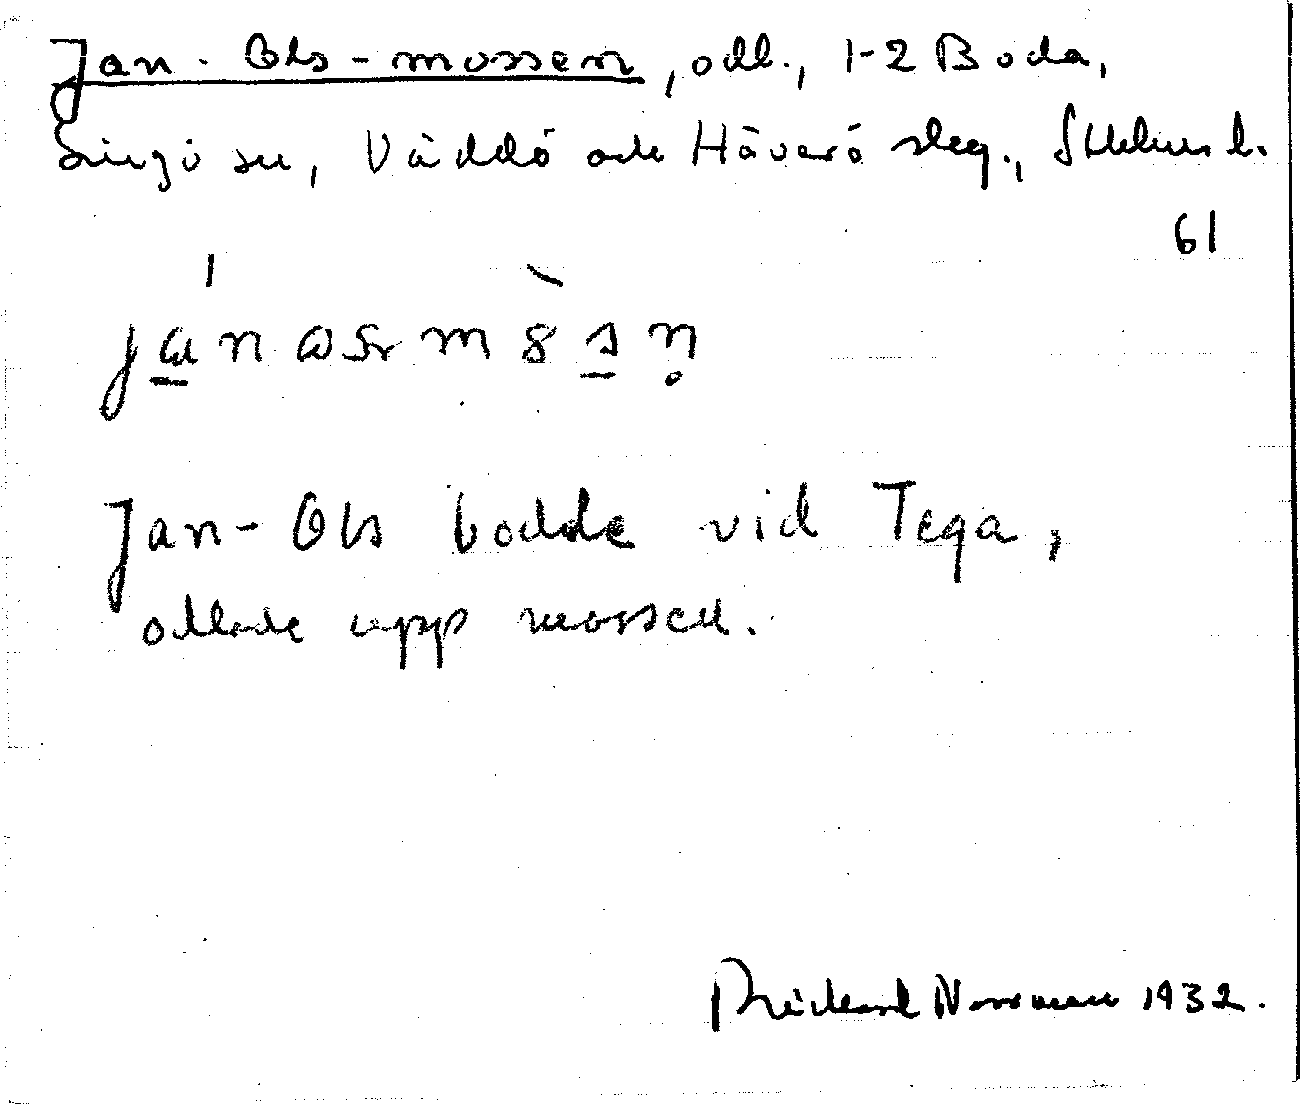 Jan-Ols-mossen, odl., 1-2 Boda,
Singö sn, Väddö och Häverö skeg., Sthlms l.
61
Jan-Ols bodde vid Tega,
odlade upp mossen.
Rickard Norrman 1932.